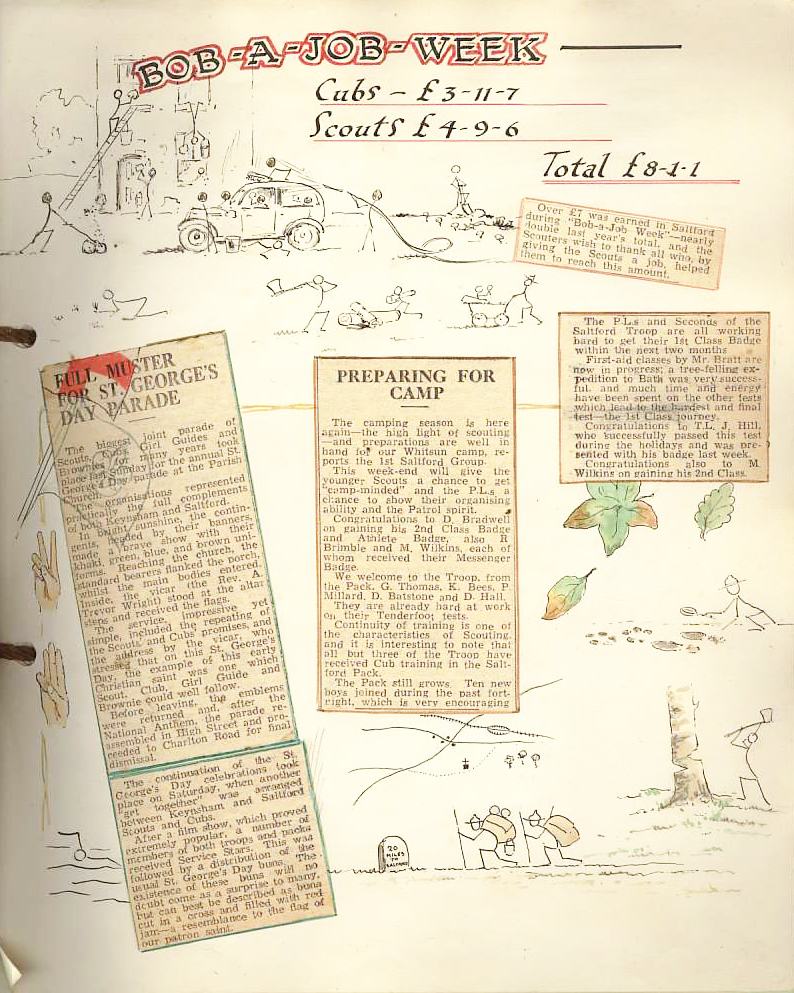 BOB-A-JOB-WEEK
Cubs - £3-11-7
Scouts £4-9-6
Total £8-1-1
Over £7 was earned in Saltford
during "Bob-a-Job Week"—nearly
double last year's total, and the
Scouters wish to thank all who, by
giving the Scouts a job, helped
them to reach this amount.
FULL MUSTER
FOR ST. GEORGE'S
DAY PARADE
The biggest joint parade of
Scouts, Cubs, Girl Guides and
Brownies for many years took
place last Sunday for the annual St.
George's Day parade at the Parish
Church.
The organisations represented
practically the full complements
of both Keynsham and Saltford.
In bright sunshine, the contin-
gents, headed by their banners,
made a brave show with their
khaki, green, blue, and brown uni-
forms. Reaching the church, the
standard bearers flanked the porch,
whilst the main bodies entered.
Inside, the vicar (the Rev. A.
Trevor Wright) stood at the altar
steps and received the flags.
The service, impressive yet
simple, included the repeating of
the Scouts' and Cubs' promises, and
the address by the vicar, who
stressed that on this St. George's
Day, the example of this early
Christian saint was one which
Scout, Club, Girl Guide and
Brownie could well follow.
Before leaving, the emblems
were returned and, after the
National Anthem, the parade re-
assembled in High Street and pro-
ceeded to Charlton Road for final
dismissal.
The continuation of the St.
George's Day celebrations took
place on Saturday, when another
"get together" was arranged
between Keynsham and Saltford
Scouts and Cubs.
After a film show, which proved
extremely popular, a number of
members of both troops and packs
received Service Stars. This was
followed by a distribution of the
usual St. George's Day buns. The
existence of these buns will no
doubt come as a surprise to many,
but can best be described as buns
cut in a cross and filled with red
jam—a resemblance to the flag of
our patron saint.
PREPARING FOR
CAMP
The camping season is here
again—the high light of scouting
—and preparations are well in
hand for our Whitsun camp, re-
ports the 1st Saltford Group.
This week-end will give the
younger Scouts a chance to get
"camp-minded" and the P.L.s a
chance to show their organising
ability and the Patrol spirit.
Congratulations to D. Bradwell
on gaining his 2nd Class Badge
and Athlete Badge, also R
Brimble and M. Wilkins, each of
whom received their Messenger
Badge.
We welcome to the Troop, from
the Pack, G. Thomas, K. Bees, P.
Millard, D. Batstone and D. Hall.
They are already hard at work
on their Tenderfoot tests.
Continuity of training is one of
the characteristics of Scouting,
and it is interesting to note that
all but three of the Troop have
received Cub training in the Salt-
ford Pack.
The Pack still grows. Ten new
boys joined during the past fort-
right, which is very encouraging
The P.L.s and Seconds of the
Saltford Troop are all working
hard to get their 1st Class Badge
within the next two months
First-aid classes by Mr. Bratt are
now in progress; a tree-felling ex-
pedition to Bath was very success-
ful, and much time and energy
have been spent on the other tests
which lead to the hardest and final
test—the 1st Class journey.
Congratulations to T.L. J. Hill,
who successfully passed this test
during the holidays and was pre-
sented with his badge last week.
Congratulations also to M.
Wilkins on gaining his 2nd Class.
20
MILES
TO